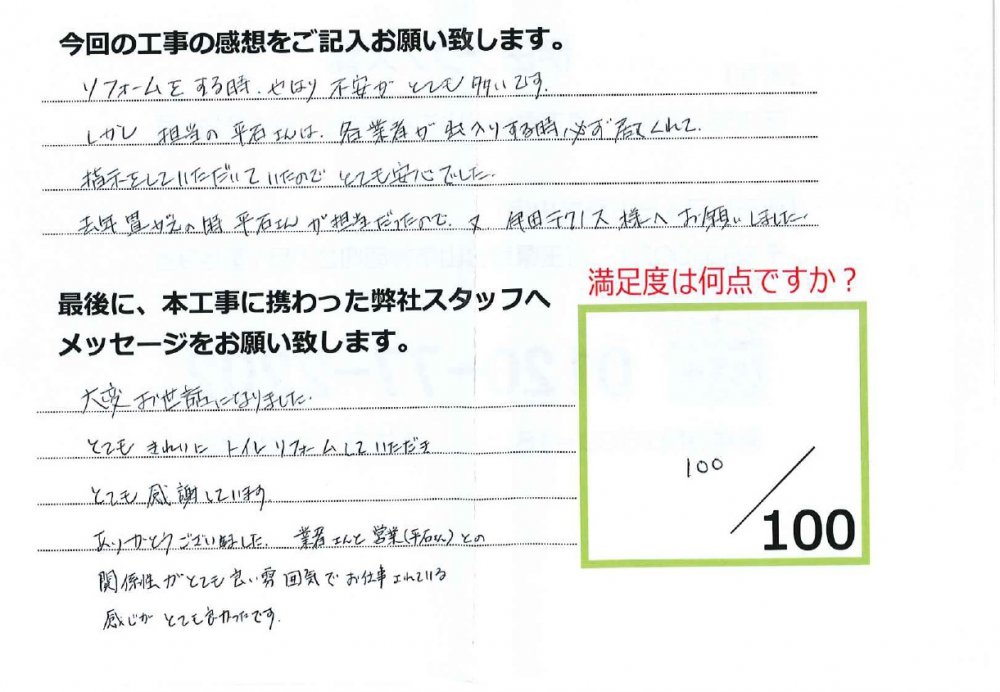 今回の工事の感想をご記入お願い致します。
リフォームをする時、やはり不安がとても多いです。
しかし担当の平石さんは、各業者が出入りする時、必ず居てくれて、
指示をしていただいていたのでとても安心でした。
去年畳がえの時平石さんが担当だったので、又 様へお願いしました。
最後に、本工事に携わった弊社スタッフへ
メッセージをお願い致します。
大変お世話になりました。
とてもきれいにトイレリフォームしていただき
とても感謝しています。
ありがとうございました。業者さんと営業(平石さん)との
関係性がとても良い雰囲気でお仕事されている
感じがとても良かったです。
満足度は何点ですか？
100
100